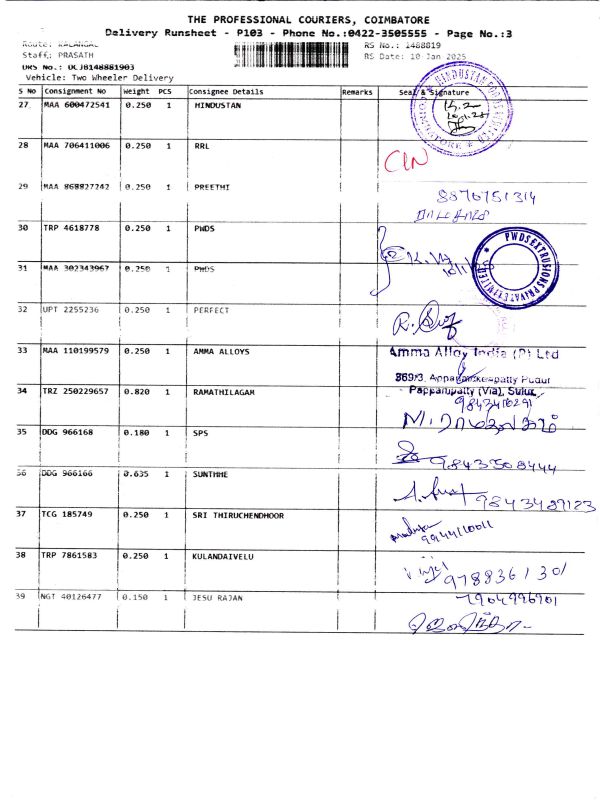 THE PROFESSIONAL COURIERS, COIMBATORE
Delivery Runsheet - P103 - Phone No.:0422-3505555 - Page No.:3
Route: KALANGAL RS No.: 1488819
Staff: PRASATH RS Date: 10 Jan 2025
DRS No.: UCJB148881903
Vehicle: Two Wheeler Delivery
S No Consignment No Weight PCS Consignee Details Remarks Seal & Signature
27 MAA 600472541 0.250 1 HINDUSTAN
28 MAA 706411006 0.250 1 RRL
29 MAA 868827242 0.250 1 PREETHI
8876751314
30 TRP 4618778 0.250 1 PWDS
PWDS EXTRUSIONS PRIVATE LIMITED
31 MAA 302343967 0.250 1 PWDS
32 UPT 2255236 0.250 1 PERFECT
33 MAA 110199579 0.250 1 AMMA ALLOYS
Amma Alloy India (P) Ltd
Pappampatty (Via), Sulur.
34 TRZ 250229657 0.820 1 RAMATHILAGAM
35 DDG 966168 0.180 1 SPS
9843508444
36 DDG 966166 0.635 1 SUNTHME
9843489123
37 TCG 185749 0.250 1 SRI THIRUCHENDHOOR
9944110011
38 TRP 7861583 0.250 1 KULANDAIVELU
39 NGT 40126477 0.150 1 JESU RAJAN
7904996901